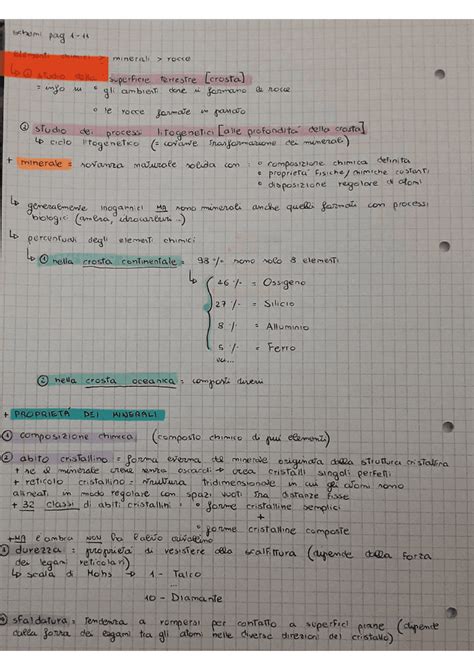 pag 1-11
elementi chimici > minerali > rocce
↳ ① studio della superficie terrestre [crosta]
= info su ∘ gli ambienti dove si formano le rocce
∘ le rocce formate in passato
② studio dei processi litogenetici [alle profondità della crosta]
↳ ciclo litogenetico (= costante trasformazione dei minerali)
+ minerale = sostanza naturale solida con : ∘ composizione chimica definita
∘ proprietà fisiche/chimiche costanti
∘ disposizione regolare di atomi
↳ generalmente inorganici MA sono minerali anche quelli formati con processi
biologici (ambra, idrocarburi...)
↳ percentuali degli elementi chimici
↳ ① nella crosta continentale = 98 % sono solo 8 elementi
↳ 46 % = Ossigeno
27 % = Silicio
8 % = Alluminio
5 % = Ferro
② nella crosta oceanica = composti diversi
+ PROPRIETÀ DEI MINERALI
① composizione chimica (composto chimico di più elementi)
② abito cristallino = forma esterna del minerale originata dalla struttura cristallina
+ se il minerale cresce senza ostacoli → crea cristalli singoli perfetti
+ reticolo cristallino = struttura tridimensionale in cui gli atomi sono
allineati in modo regolare con spazi vuoti tra distanze fisse
+ 32 classi di abiti cristallini : ∘ forme cristalline semplici
+
∘ forme cristalline composte
+ MA l'ambra NON ha l'abito cristallino
③ durezza = proprietà di resistere alla scalfittura (dipende dalla forza
dei legami reticolari)
↳ scala di Mohs → 1 - Talco
...
10 - Diamante
④ sfaldatura = tendenza a rompersi per contatto a superfici piane (dipende
dalla forza dei legami tra gli atomi nelle diverse direzioni del cristallo)